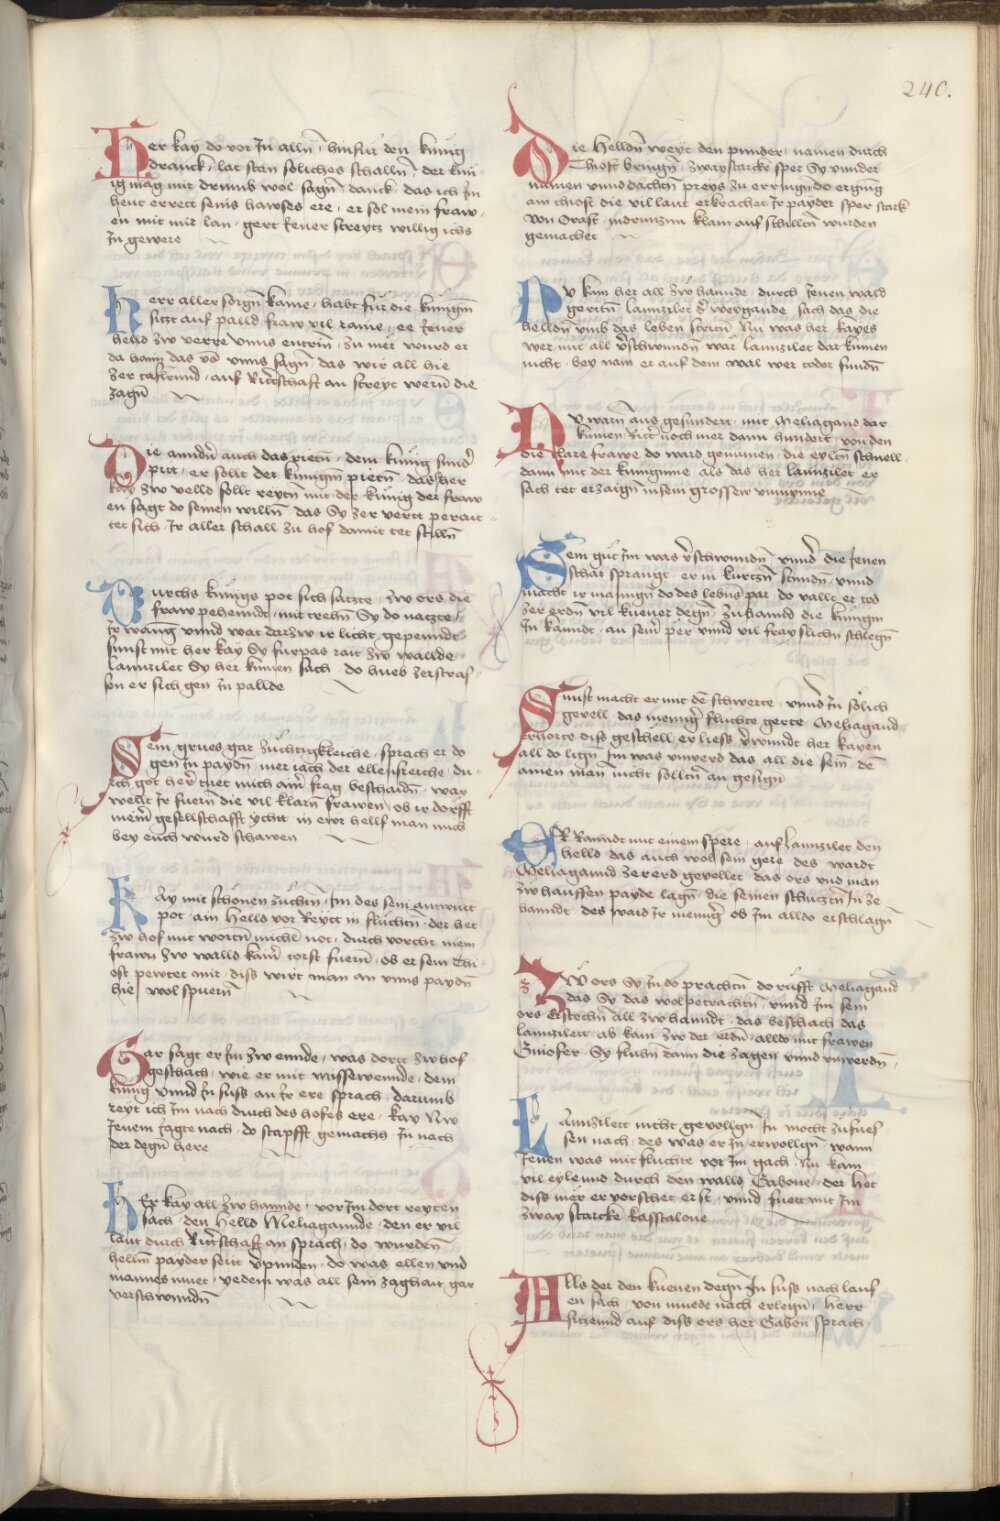 240.
Her kay do vor Jn alln̄ · hinfür den künig
dranck · lat stan soliches schalln̄ · der kün
ig mag mir drumb wol sagn̄ danck · das ich Jm
hewt errett seins hawses ere · er sol mein fraw
en mit mir lan · gert Jener streytz willig ichs
Jn gewere
Herr aller sorgn̄ kame · habt für die künigin
sitzt auf palld fraw vil rame · ee Jener
helld zw verre vnns entrin̄ · zu mer wurd er
da haim das vō vnns sagn̄ · das wir all hie
zer taflrund · auf Ritterschaft an streyt wern̄ die
zagn̄
Die anndn̄ auch das rietn̄ · dem künig sunder
pitt · er sollt der künigin pietn̄ das her
kay zw velld sollt reytn̄ mit der künig der fraw
en sagt do seinen willn̄ · das Sy zer vertt perait
tet sich Jr aller schall zu hof damit tet stilln̄
Durchs künigs pot sich satzte · zw ors die
fraw pehenndt · mit trehn̄ Sy do natzte
Jr wang vnnd wat darzw ir licht gepenndt
sunst mit her kay Sy furpas rait zw wallde
Lannzilet Sy her kumen sach · do hueb zerstras
sen er sich gen Jn pallde
Sein grues gar züchtigkleiche · sprach er do
gen Jn paydn̄ · mer iach der ellensreiche · du
rch got herr tuet mich amr̄ frag beschaidn̄ · war
wellt Jr fuern̄ die vil klarn̄ frawen · ob ir dorfft
meinr̄ gesellschafft ychtt in ewr hellf man mich
bey euch wurd schawen
Kay mit schönen züchtn̄ · Jm des sein antwurt
pot · ain helld vor Reytt in fluchtn̄ · der het
zw hof mit worttn̄ michl not · durch vorcht mein
frawn zw walld kamr̄ torst fuern̄ · ob er sein thi
ost pewtet mir · diss wirt man an vnns paydn̄
hie wol spuern̄
Gar sagt er Jm zw ennde · was dortt zw hof
geschach · wie er mit missewennde · dem
künig vnnd Jn suss an Jr ere sprach · darumb
reyt ich Jm nach durch des hofes ere · kay Nw
Jenem Jagte nach · do stapfft gemachs Jn nach
der degn̄ here
Her kay all zw hannde · vor Jm dort reyten
sach · den Helld Meliagannde · den er vil
laut durch Ritterschaft an sprach · do wurden
hellm̄ payder seitt verpunden · do was ellen vnd
mannes muet · yedem was all sein zaghait gar
verschwundn̄
Die Helldn̄ weyt den punder · namen durch
Thiost bringn̄ · zway starcke sper Sy vnnder
namen vnnd dachtn̄ preys zu erringn̄ do erging
ain thiost die vil laut erkrachet Jr payder sper stark
von Crafft · indrunzun klain auf schilltn̄ wurden
gemachet
Nu kam her all zw hannde · durch Jenen wald
geritn̄ · Lannzilet der weygande · sach das die
helldn̄ vmb das leben stritn̄ Nu was her kayes
wer mit all verschwundn̄ war Lannzilet dar kumen
nicht · bey nam er auf dem wal wer toder fundn̄
Nu warn̄ aus gesundert · mit Meliagand dar
kumen · Ritter noch mer dann hundert · von den
die clare frawe do ward genumen · die eyltn̄ schnell
dann mit der künginne · als das her Lannzilet er
sach tet er zaign̄ in sein grossew vnmynne
Sein güt Jm was verschwundn̄ · vnnd die Jenen
schar sprangt · er in kurtzn̄ stundn̄ · vnnd
macht ir manign̄ do des lebens par · do vallt er tod
zer erdn̄ vil kuener degn̄ · zuhannd die künigin
Jn kanndt · an seinr̄ per vnnd vil fray slichn̄ schlegn̄
Sunst macht er mit dē schwerte · vnnd Jn solich
gevell · das mennigr̄ fluchte gerte Meliagand
erhorte diss geschell · er liess verwundt her kayen
all do lign̄ · Jm was vnwerd das all die sein dē
ainen man nicht solltn̄ an gesign̄
ER Ranndt mit einem spere · auf Lannzilet den
helld · das auch wol sein gere des wardt
Meliagannd zererd gevellet · das ors vnd man
zw hauffen payde lagn̄ · die seinen schutztn̄ Jn ze
hanndt · des ward Jr mennigr̄ ob Jm alldo erschlagn̄
ZW ors Sy Jn do prachtn̄ · do rüfft Meliagand
das Sy das wol petrachtn̄ · vnnd Jm sein
ors Erstechn̄ all zw hanndt · das beschach das
Lannzilett ab kam zw der erdn̄ · alldo mit frawen
Ginofer · Sy fluhn̄ dann die zagen vnnd vnwerdn̄
Lannzilett nicht gevollgn̄ · Jn mocht zufues
sen nach · des was er Jn erwollgn̄ · wann
Jenen was mit fluchte vor Jm gach · Nu kam
vil eylennd durch den walld Gabone · der het
diss mer ervorschet erst · vnnd fuert mit Jm
zway starcke kasstalone
Alls der den kuenen degn̄ Jn suss nach lauf
en sach · von muede nach erlegn̄ · herr
sitzennd auf diss ors her Gaben sprach